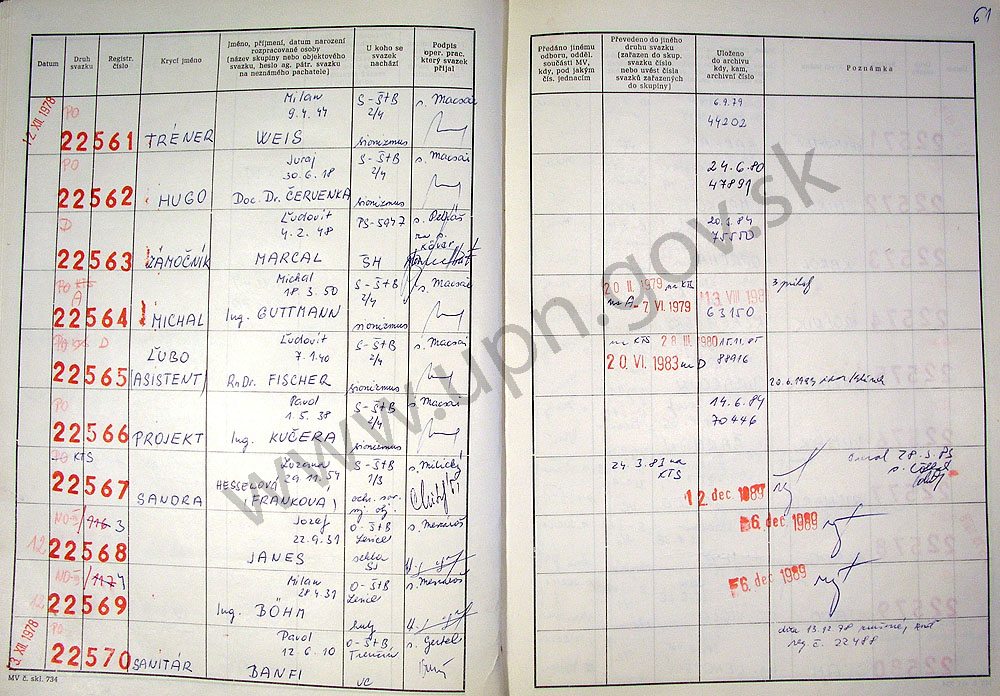 61
Datum
Druh svazku
Registr. číslo
Krycí jméno
Jméno, příjmení, datum narození rozpracované osoby (název skupiny nebo objektového svazku, heslo ag. pátr. svazku na neznámého pachatele)
U koho se svazek nachází
Podpis oper. prac. který svazek přijal
Předáno jinému odboru, odděl. součásti MV, kdy, pod jakým čís. jednacím
Převedeno do jiného druhu svazku (zařazen do skup. svazku číslo nebo uvést čísla svazků zařazených do skupiny)
Uloženo do archivu kdy, kam, archivní číslo
Poznámka
12. XII. 1978
PO
22561 TRÉNER
Milan
9.4.44
WEIS
S-ŠtB
2/4
sionizmus
s. Macsái
6.9.79
44202
PO
22562 HUGO
Juraj
30.6.18
Doc. Dr. ČERVENKA
S-ŠtB
2/4
sionizmus
s. Macsái
24.6.80
47891
D
22563 ZÁMOČNÍK
Ľudovít
4.2.48
MARCAL
PS-5947
ŠH
20.3.84
75550
PO
A
22564 MICHAL
Michal
18.3.50
Ing. GUTTMANN
S-ŠtB
2/4
sionizmus
s. Macsái
20 II. 1979 na KTS
na A -7. VI. 1979
13 VIII 198
63150
PO D
22565
ĽUBO
(ASISTENT)
Ľudovít
7.1.40
RnDr. FISCHER
S-ŠtB
2/4
sionizmus
s. Macsái
na KTS 28. III. 1980
20. VI. 1983 na D
15.11.85
88916
PO
22566 PROJEKT
Pavol
1.5.38
Ing. KUČERA
S-ŠtB
2/4
sionizmus
s. Macsái
14.6.84
70446
PO KTS
22567 SANDRA
Zuzana
HESSELOVÁ
FRANKOVÁ
S-ŠtB
24.3.83 na
KTS
12. dec 1989
3
22568
Jozef
22.9.31
JANES
O-ŠtB
Levice
6. dec 1989
22569
Milan
28.4.31
Ing. BÖHM
O-ŠtB
Levice
6. dec 1989
13. XII. 1978
PO
22570 SANITÁR
Pavol
12.6.10
BANFI
O-ŠtB
Trenčín
VC
dňa 13.12.78
reg. č. 22488
MV č. skl. 734
www.upn.gov.sk